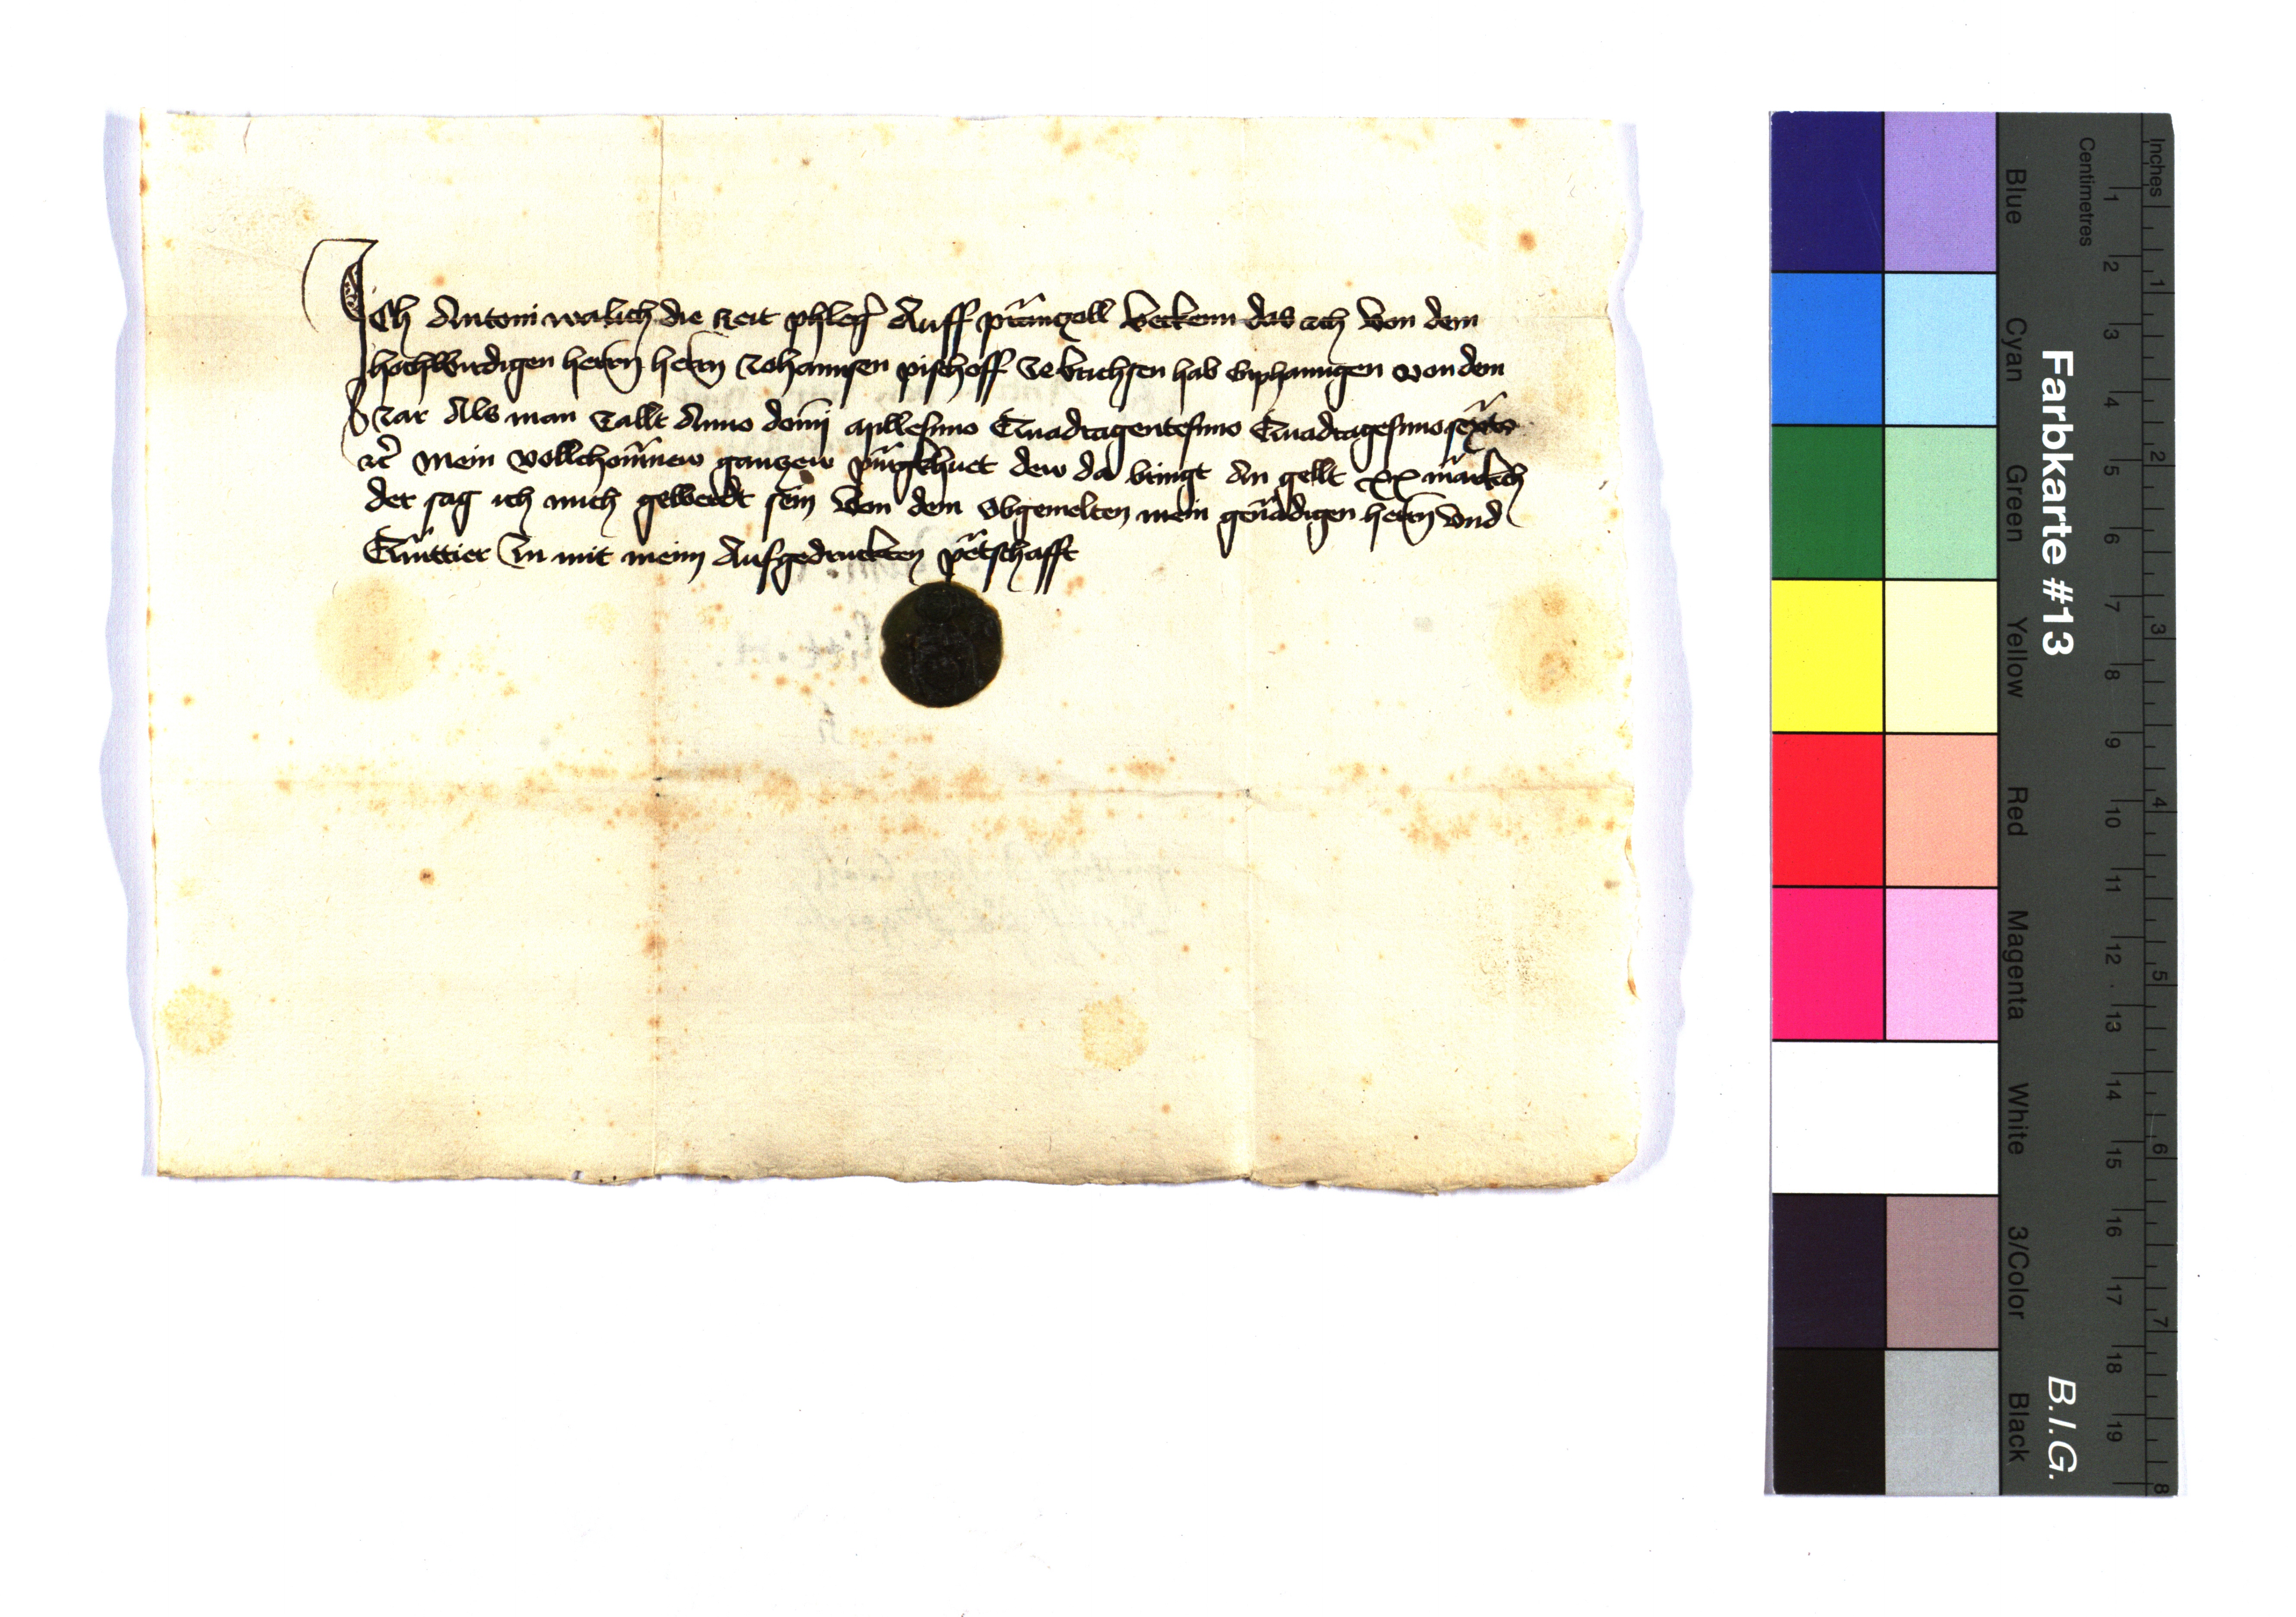 Ich Antoni walich die zeit phleger Auff printzell bekenn das ich von dem
hochwirdigen herrn herrn Johannsen pischoff ze brichsen hab emphanngen von dem
Jar Als man zallt Anno domini millesimo Quadragentesimo Quadragesimo sexto
etc mein vollchomnew gantzew purgkhuet dew da bringt An gellt xx markch
der sag ich mich gewerdt sein von dem obgemelten mein genadigen herrn vnd
Quittier In mit meim Aufgedruckten petschafft
Farbkarte #13
B.I.G.
Inches 1 2 3 4 5 6 7 8
Centimetres 1 2 3 4 5 6 7 8 9 10 11 12 13 14 15 16 17 18 19
Blue Cyan Green Yellow Red Magenta White 3/Color Black